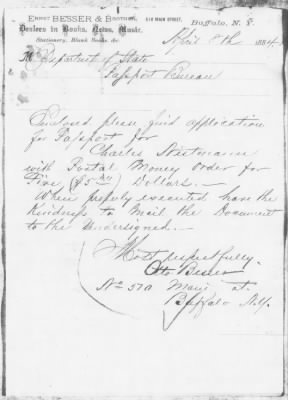 Ernst Besser & Brother, 510 Main Street,
Dealers in Books, News, Music,
Stationery, Blank Books, &c
Buffalo, N. Y.
April 8th 1884
To Department of State
Passport Bureau
Enclosed please find application
for Passport for
Charles
with Postal Money Order for
Five ($5.00) Dollars.
When properly executed have the
Kindness to Mail the Document
to the Undersigned.
Most respectfully
Otto Besser
No 510 Main st.
Buffalo N.Y.